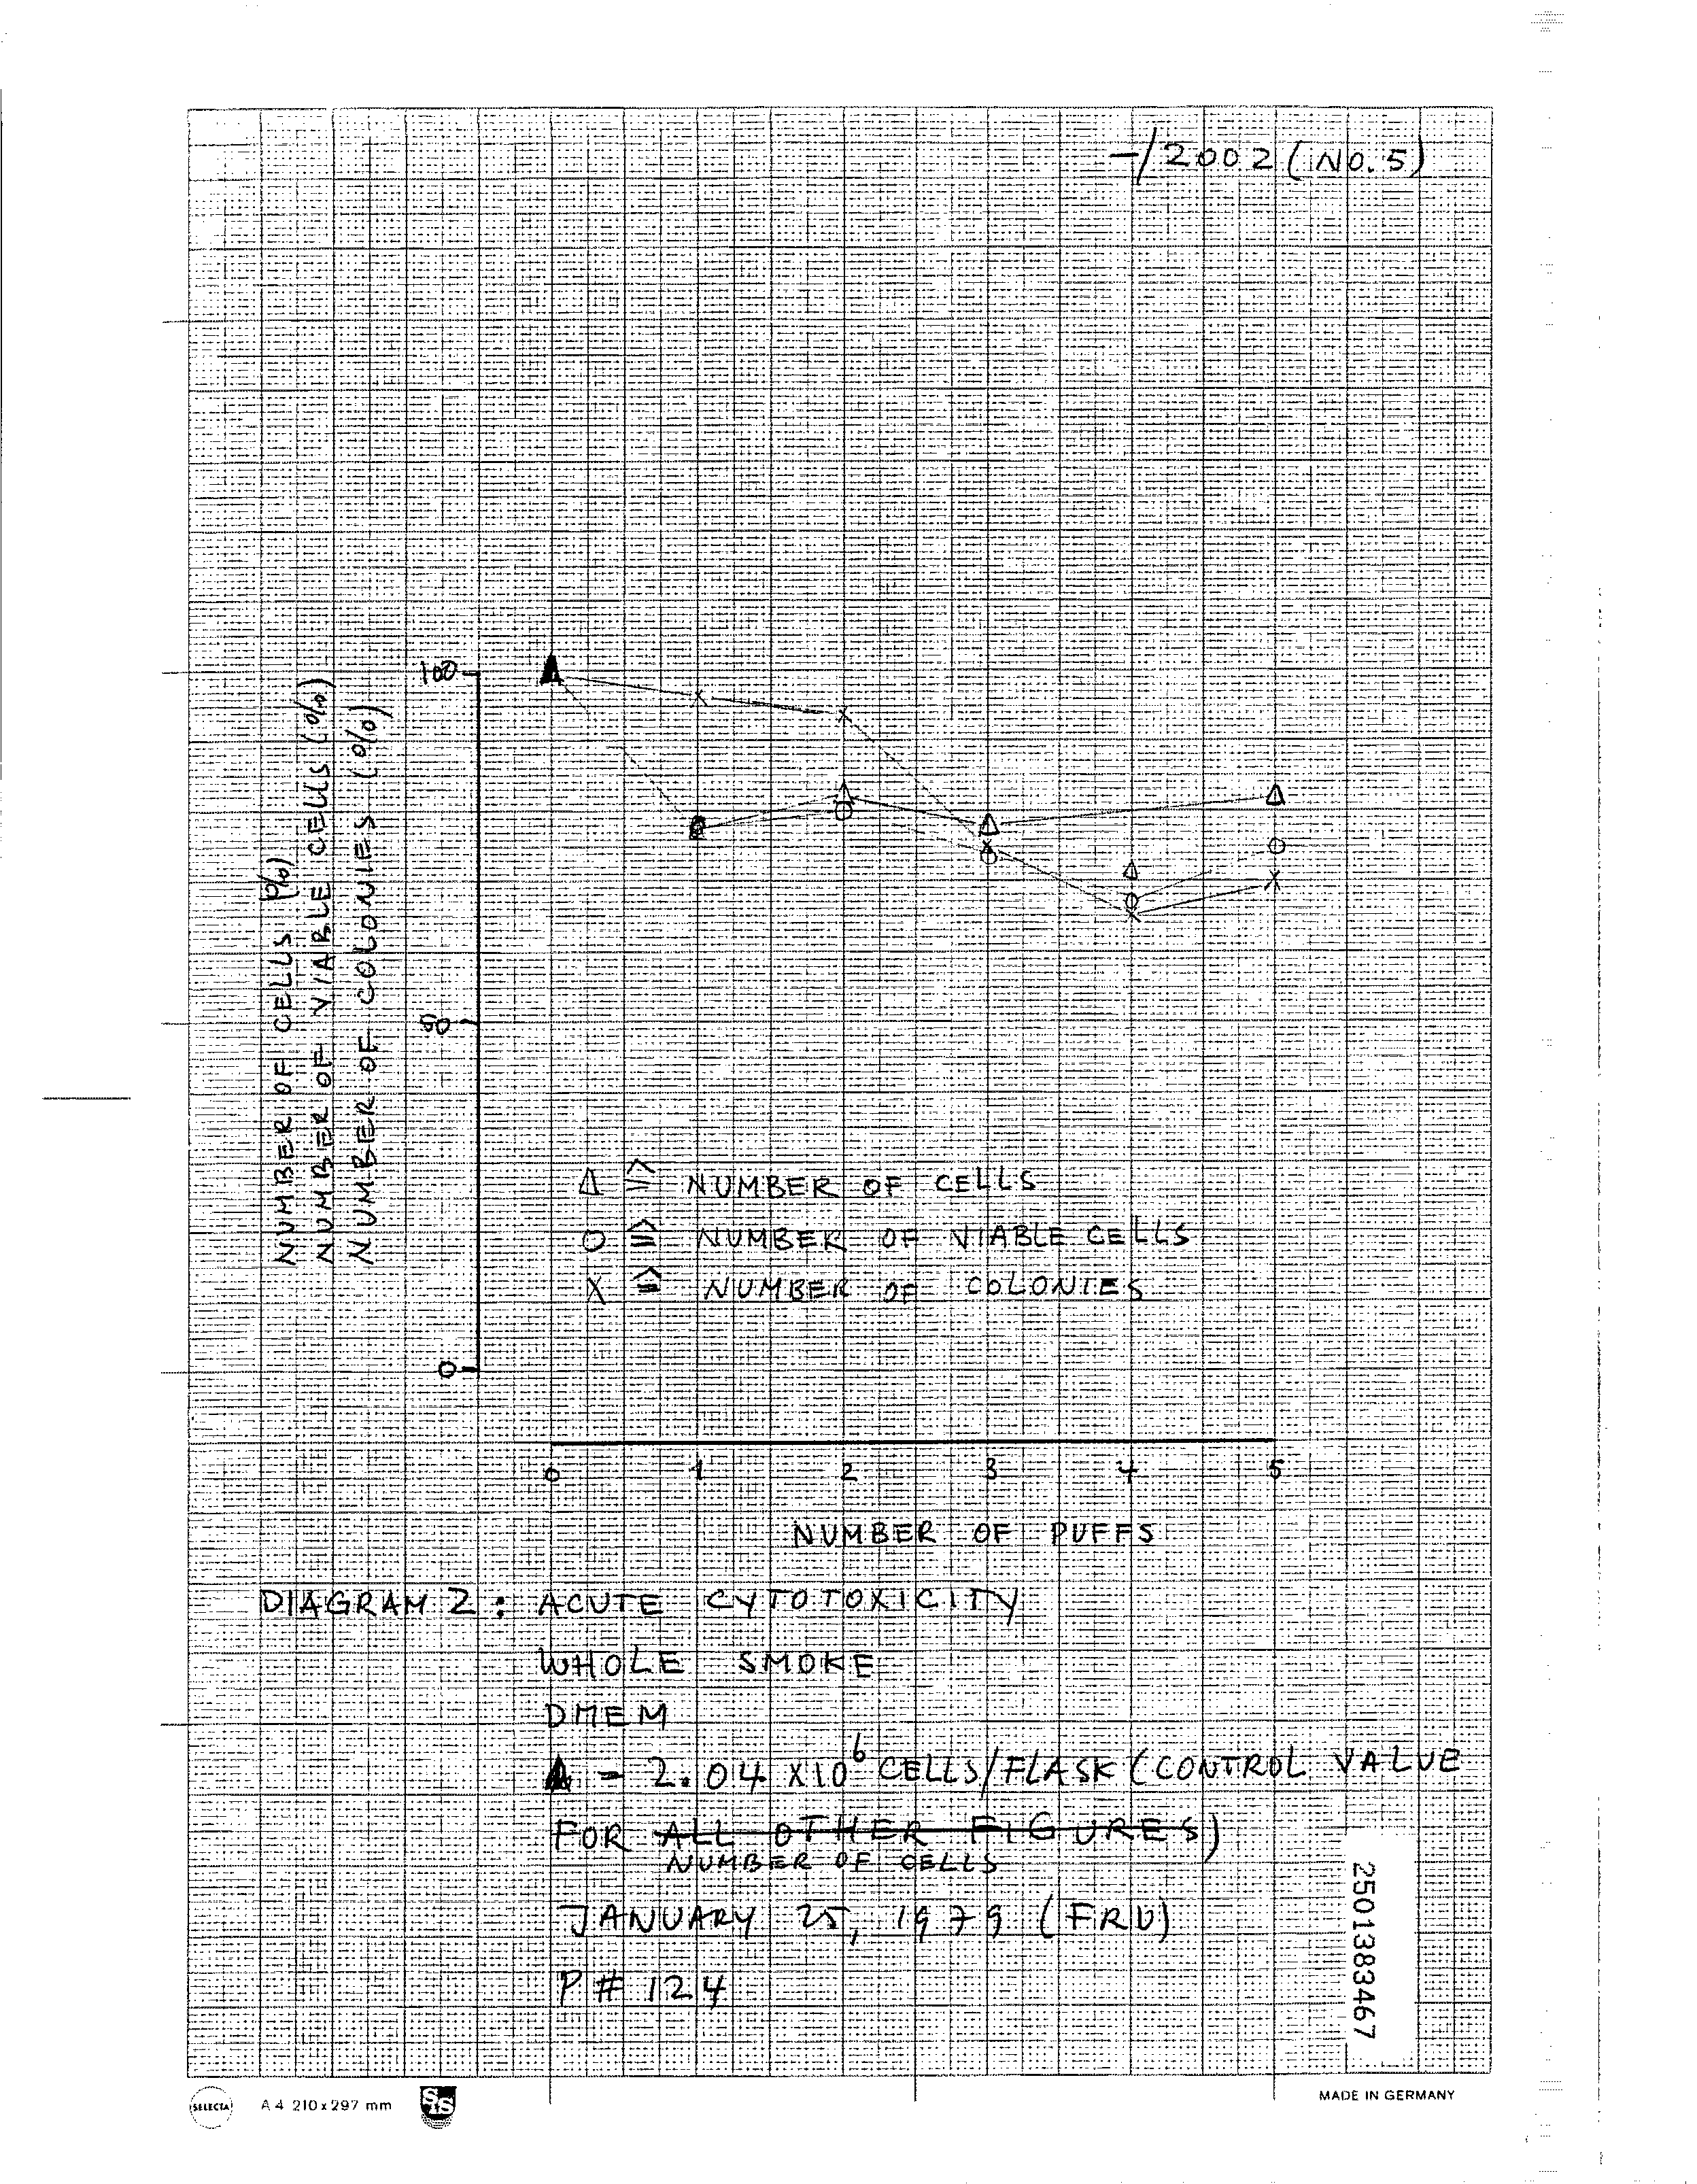 -/2002 (NO. 5)
NUMBER OF CELLS (%)
NUMBER OF VIABLE CELLS (%)
NUMBER OF COLONIES (%)
100
50
0
Δ ≙ NUMBER OF CELLS
O ≙ NUMBER OF VIABLE CELLS
X ≙ NUMBER OF COLONIES
0 1 2 3 4 5
NUMBER OF PUFFS
DIAGRAM 2: ACUTE CYTOTOXICITY
WHOLE SMOKE
DMEM
▲ = 2.04 X10⁶ CELLS/FLASK (CONTROL VALUE
FOR ALL OTHER FIGURES)
NUMBER OF CELLS
JANUARY 25, 1979 (FRU)
P # 124
2501383467
SELECTA A 4 210 x 297 mm S&S
MADE IN GERMANY